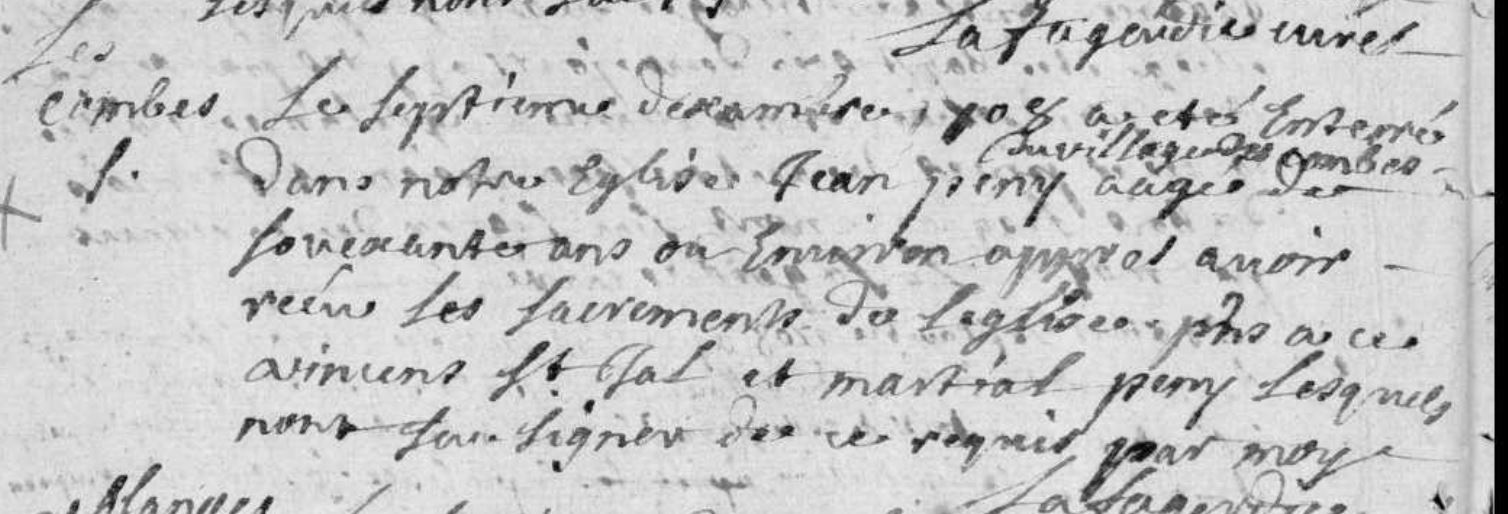 lesquels nont
Lafagerdie curé
Les
combes Le septieme decembre 1708 a eté Enterré
du village des combes
S. dans notre Eglise Jean peny aagé de
souexante ans ou Environ appres avoir
reçu les sacrements de leglise pns a ce
vincens St Jal et martial peny lesquels
nont scu signer de ce requis par moy
Lafagerdie